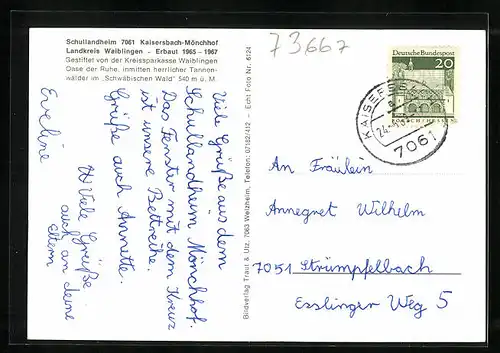 Schullandheim 7061 Kaisersbach-Mönchhof
Landkreis Waiblingen - Erbaut 1965 - 1967
Gestiftet von der Kreissparkasse Waiblingen
Oase der Ruhe, inmitten herrlicher Tannen-
wälder im „Schwäbischen Wald" 540 m ü. M.
73667
Deutsche Bundespost
20
7061
Viele Grüße aus dem
Schullandheim Mönchhof.
Das Fenster mit dem Kreuz
ist unsere Bettreihe.
Grüße auch Annette.
Eveline
Viele Grüße
auch an deine
Eltern
Bildverlag Traut & Utz, 7063 Welzheim, Telefon: 07182/412 - Echt Foto Nr. 6124
An Fräulein
Annegret Wilhelm
7051 Strümpfelbach
Esslinger Weg 5